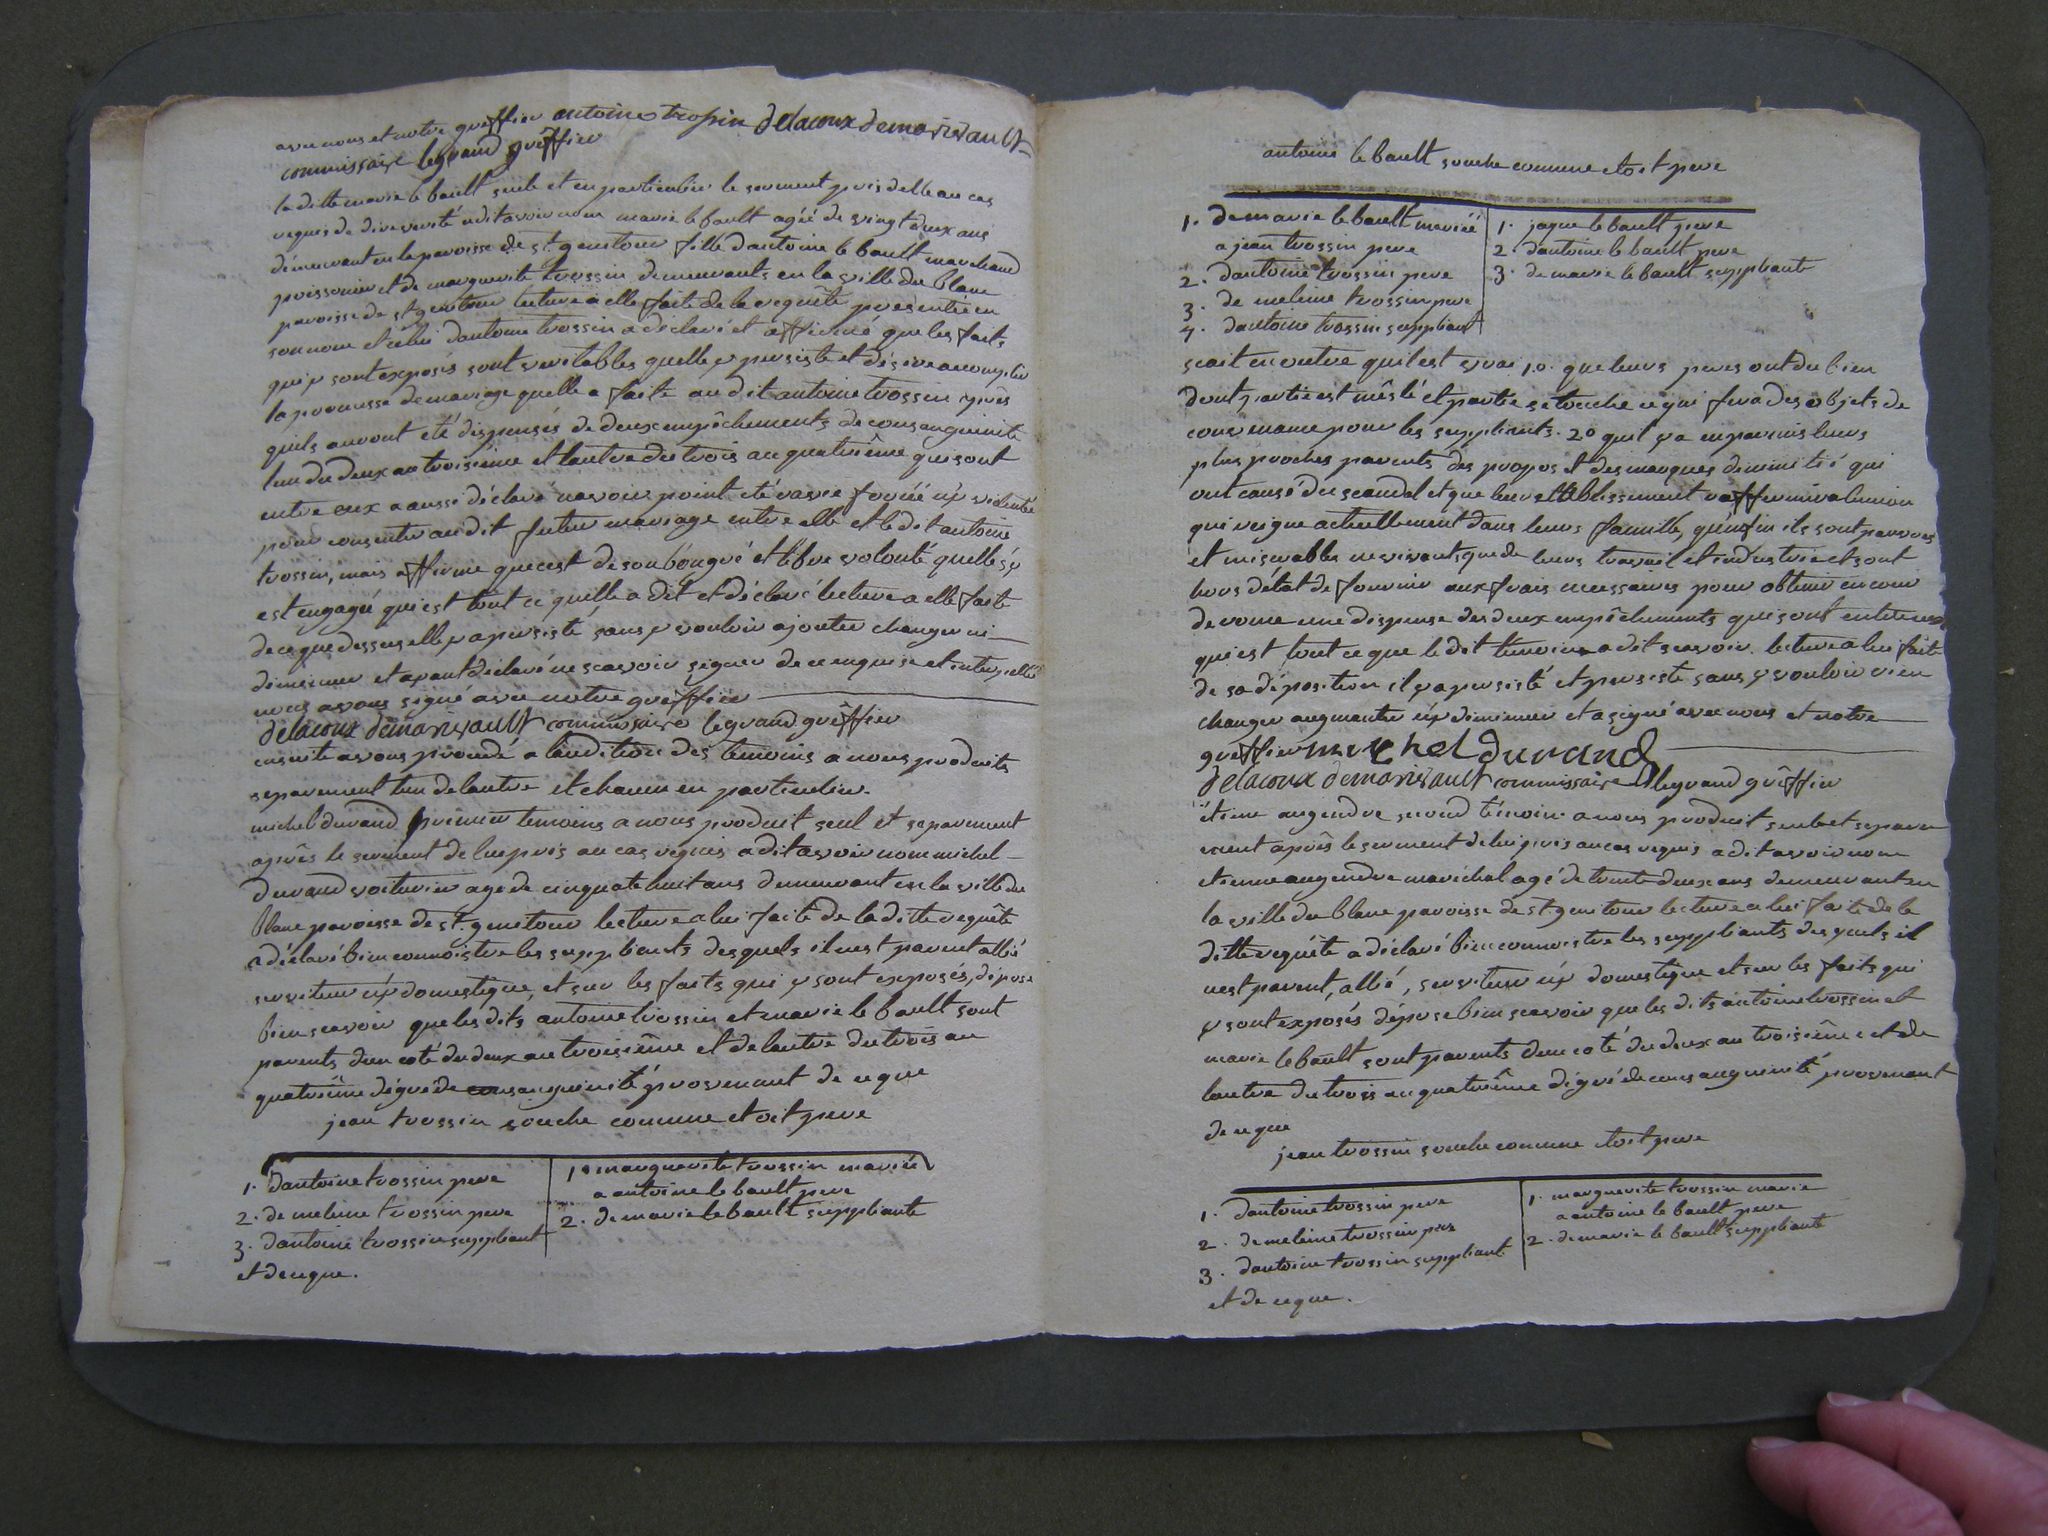 avec nous et notre greffier antoine trossin delacoux demarivault
commissaire legrand greffier
la ditte marie le bault seule et en particulier le serment pris delle au cas
requis de dire verité a dit avoir nom marie le bault agéé de vingt deux ans
demeurant en la paroisse de st. genitour fille dantoine le bault marchand
poissonier et de marguerite trossin demeurants en la ville du blanc
paroisse de st genitour lecture a elle faite de la requête presentée en
son nom et celui dantoine trossin a déclaré et affirmé que les faits
qui y sont exposés sont veritables quelle y persiste et désire accomplir
la promesse de mariage quelle a faite au dit antoine trossin après
quils auront été dispensés de deux empêchements de consanguinité
lun du deux au troisieme et lautre du trois au quatriême qui sont
entre eux a aussi déclaré navoir point eté ravie forcéé ny violentéé
pour consentir au dit futur mariage entre elle et le dit antoine
trossin, mais affirme que cest de son bongré et libre volonté quelle sy
est engagéé qui est tout ce quelle a dit et déclaré lecture a elle faite
de ce que dessus elle y a persisté sans y vouloir ajouter changer ni
diminuer et ayant déclaré ne scavoir signer de ce enquise et interpelléé
nous avons signé avec notre greffier
delacoux demarivault commissaire legrand greffier
ensuite avons procedé a laudition des temoins a nous produits
separement lun de lautre et chacun en particulier.
michel durand premier temoins a nous produit seul et separement
après le serment de lui pris au cas requis a dit avoir nom michel
durand voiturier agé de cinquate huit ans demeurant en la ville du
blanc paroisse de st. genitour lecture a lui faite de la ditte requête
a déclaré bien connoistre les suppliants desquels il nest parent allié
serviteur ny domestique, et sur les faits qui y sont exposés, dépose
bien scavoir que les dits antoine trossin et marie le bault sont
parents dun coté du deux au troisiême et de lautre du trois au
quatriême dégré de consanguinité provenant de ce que
jean trossin souche comune etoit pere
1. dantoine trossin pere
2. de meleine trossin pere
3. dantoine trossin suppliant
et de ce que.
1. marguerite trossin mariéé
a antoine le bault pere
2. de marie le bault suppliante
antoine le bault souche comune etoit pere
1. de marie le bault mariéé
a jean trossin pere
2. dantoine trossin pere
3. de meleine trossin pere
4. dantoine trossin suppliant
1. jaque le bault pere
2. dantoine le bault pere
3. de marie le bault suppliante
scait en outre quil est vrai 1o. que leurs peres ont du bien
dont partie est mêslé et partie se touche ce qui fera des objets de
convenance pour les suppliants. 2o quil y a eu parmis leurs
plus proches parents des propos et des marques dinimitié qui
ont causé du scandal et que leur etablissement raffermira lunion
qui reigne actuellement dans leurs famille, quenfin ils sont pauvres
et miserables ne vivants que de leurs travail et industrie et sont
hors détat de fournir aux frais necessaires pour obtenir en cour
de rome une dispense des deux empêchements qui sont entre eux
qui est tout ce que le dit temoin a dit scavoir. lecture a lui faite
de sa déposition il y a persisté et persiste sans y vouloir rien
changer augmenter ny diminuer et a signé avec nous et notre
greffier michel durand
delacoux demarivault commissaire legrand greffier
etiene augendre second témoin a nous produit seul et separe
ment après le serment de lui pris au cas requis a dit avoir nom
etienne augendre maréchal agé de trente deux ans demeurant en
la ville du blanc paroisse de st. genitour lecture a lui faite de la
ditte requête a déclaré bien connoistre les suppliants desquels il
nest parent, allié, serviteur ny domestique et sur les faits qui
y sont exposés dépose bien scavoir que les dits antoine trossin et
marie le bault sont parents dun coté du deux au troisiême et de
lautre du trois au quatriême dégré de consanguinité provenant
de ce que
jean trossin souche comune etoit pere
1. dantoine trossin pere
2. de meleine trossin pere
3. dantoine trossin suppliant
et de ce que.
1. marguerite trossin marie
a antoine le bault pere
2. de marie le bault suppliante